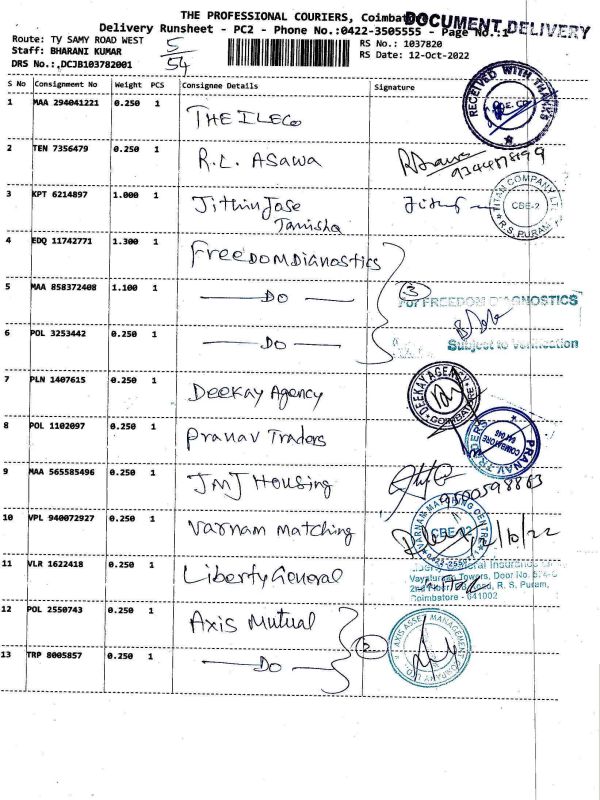 THE PROFESSIONAL COURIERS, Coimbatore
DOCUMENT DELIVERY
Delivery Runsheet - PC2 - Phone No.:0422-3505555 - Page No.:1
Route: TY SAMY ROAD WEST
Staff: BHARANI KUMAR
DRS No.:,DCJB103782001
5
54
RS No.: 1037820
RS Date: 12-Oct-2022
S No Consignment No Weight PCS Consignee Details Signature
1 MAA 294041221 0.250 1 THE ILECO
RECEIVED WITH THANKS
2 TEN 7356479 0.250 1 R.L. ASAWA
3 KPT 6214897 1.000 1 Jithin Jose
Tanisha
TITAN COMPANY LT
CBE-2
R.S. PURAM
4 EDQ 11742771 1.300 1 FREEDOM DIANOSTICS
5 MAA 858372408 1.100 1 DO
3
For FREEDOM DIAGNOSTICS
6 POL 3253442 0.250 1 DO
Subject to Verification
7 PLN 1407615 0.250 1 DEEKAY Agency
DEEKAY AGENCY
COIMBATORE
8 POL 1102097 0.250 1 Pranav Traders
PRANAV TRADERS
COIMBATORE
9 MAA 565585496 0.250 1 JMJ Housing
10 VPL 940072927 0.250 1 Varnam Matching
VARNAM MATCHING CENTRE
CBE-02
12/10/22
11 VLR 1622418 0.250 1 Liberty General
General Insurance
Vayuturam Towers, Door No.
Road, R. S. Puram,
Coimbatore - 641002
12 POL 2550743 0.250 1 Axis Mutual
2
AXIS ASSET MANAGEMENT
COMPANY LTD
13 TRP 8005857 0.250 1 DO